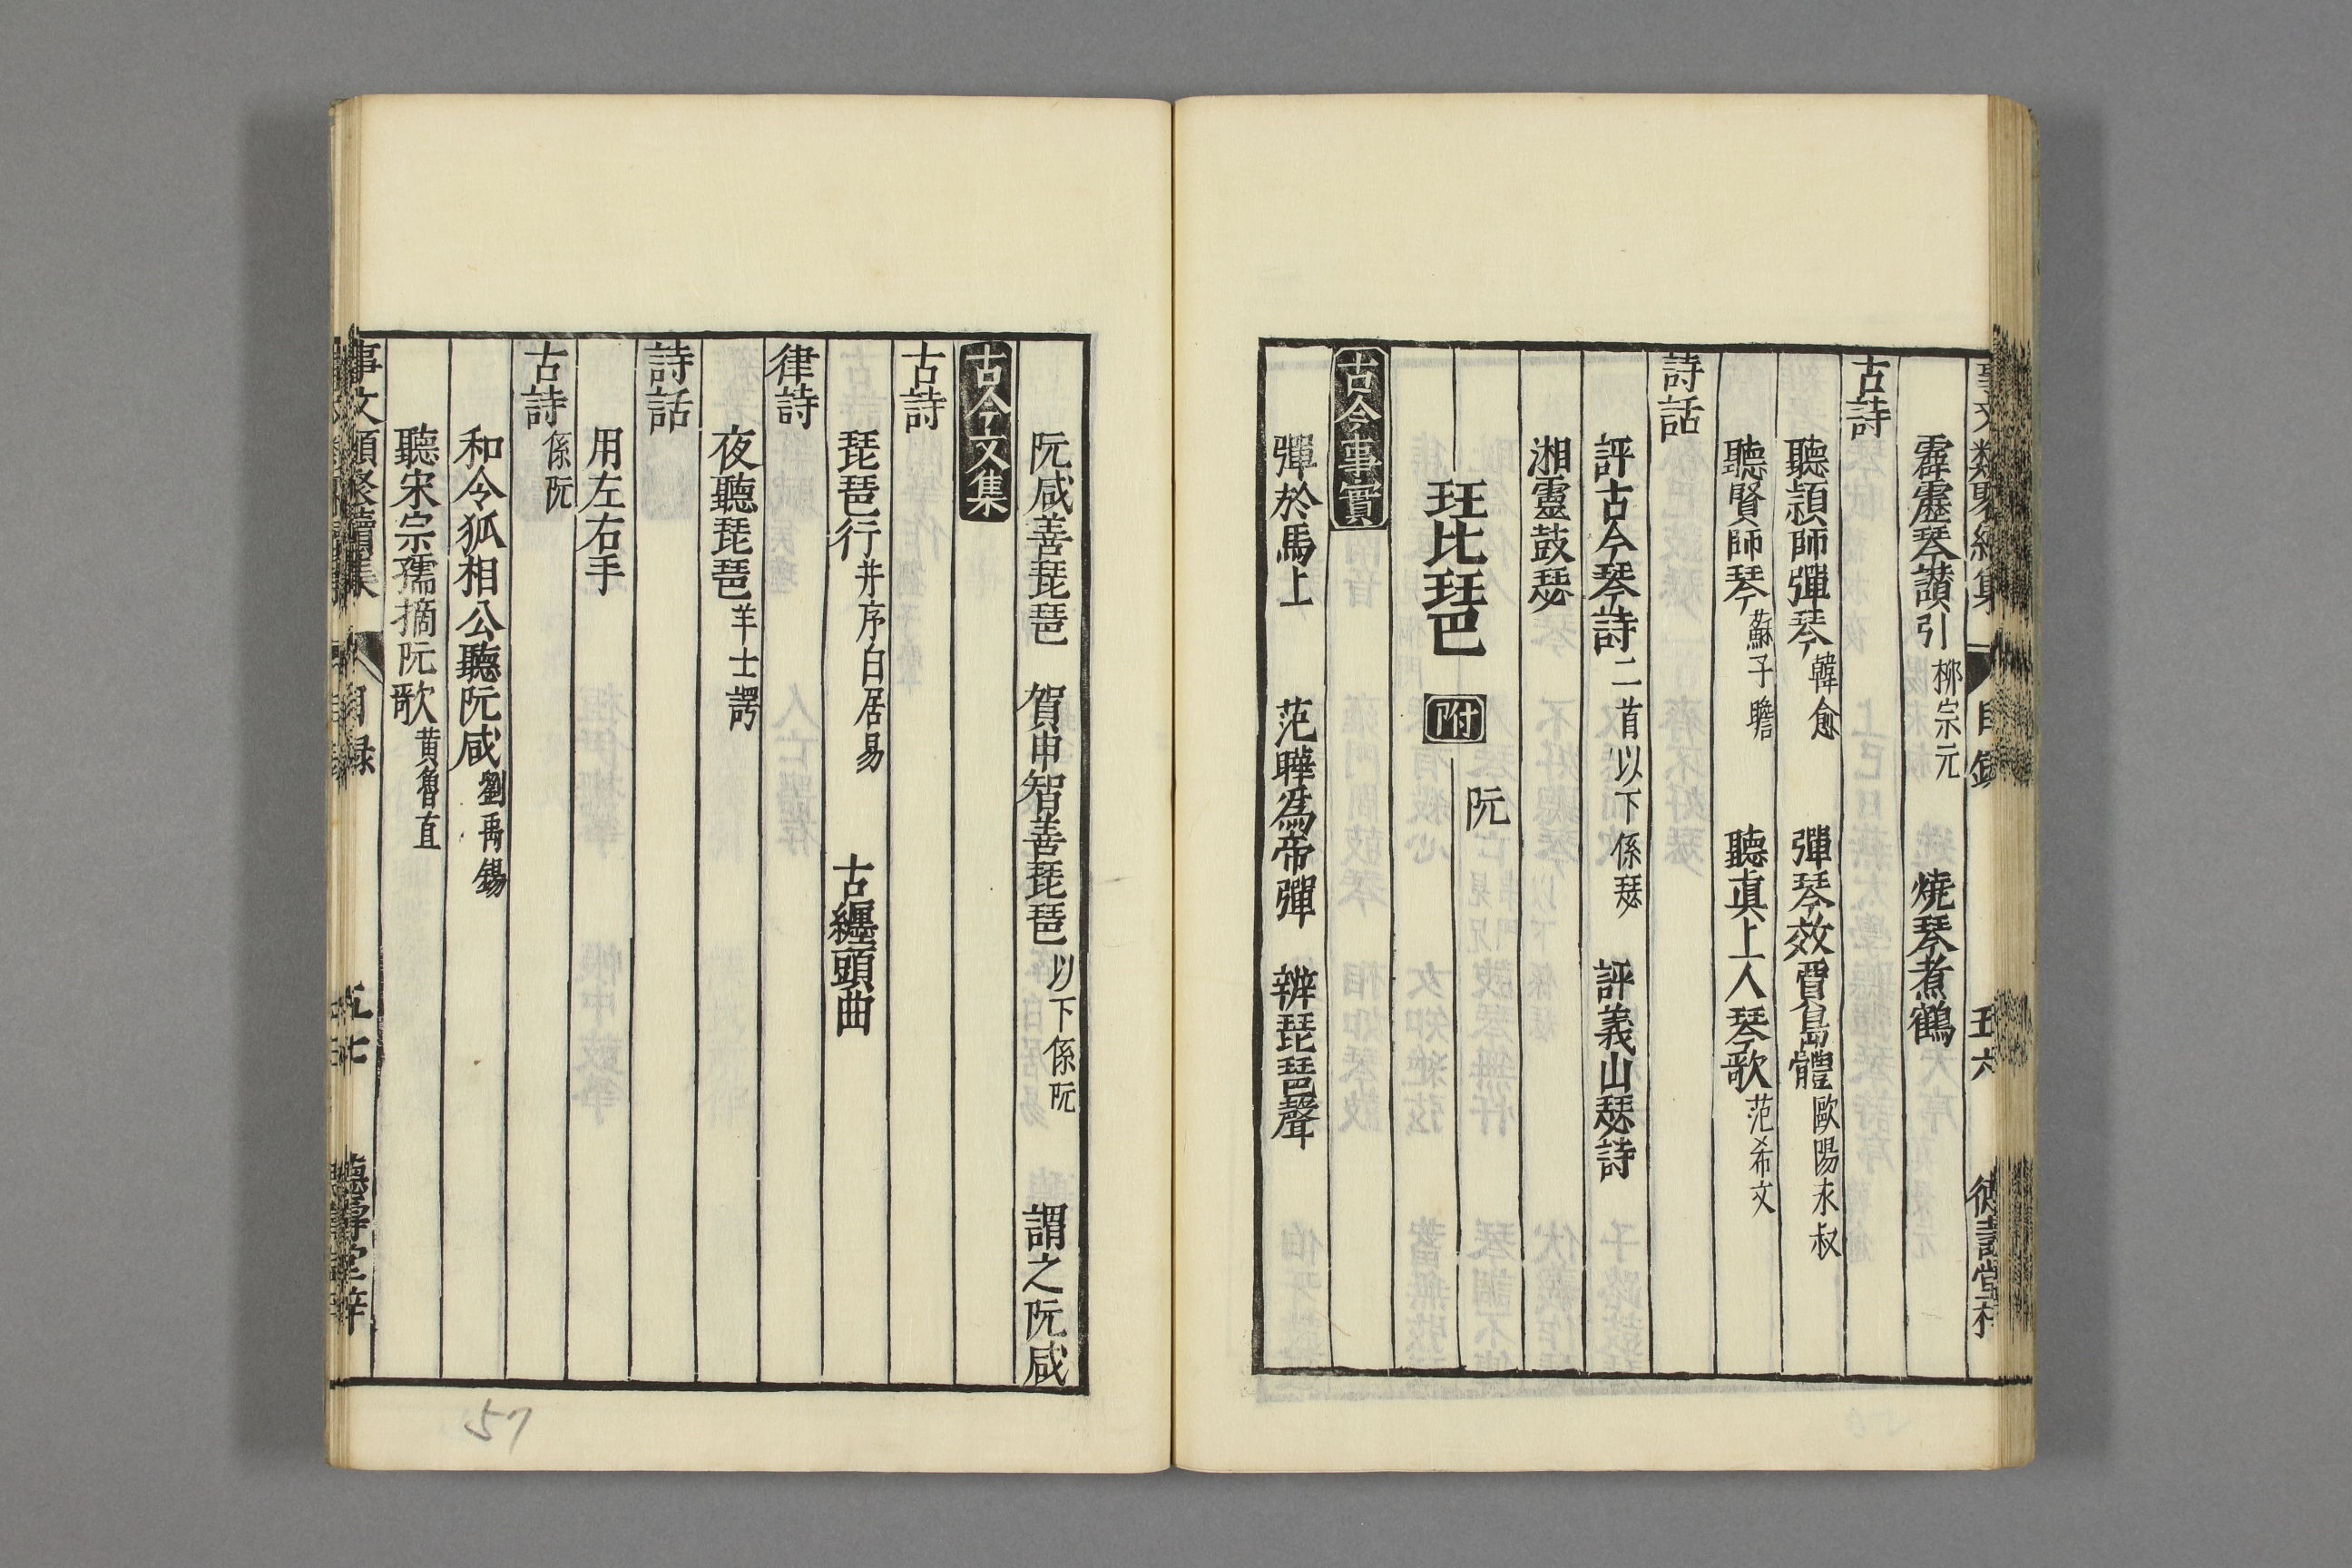 事文類聚續集 目錄 五六 德壽堂梓
霹靂琴讃引 柳宗元 燒琴煮鶴
古詩
聽頴師彈琴 韓愈 彈琴效賈島體 歐陽永叔
聽賢師琴 蘇子瞻 聽真上人琴歌 范希文
詩話
評古今琴詩 二首以下係瑟 評義山瑟詩
湘靈鼓瑟
琵琶 附 阮
古今事實
彈於馬上 范曄爲帝彈 辨琵琶聲
阮咸善琵琶 賀申智善琵琶 以下係阮 謂之阮咸
古今文集
古詩
琵琶行 并序白居易 古纏頭曲
律詩
夜聽琵琶 羊士諤
詩話
用左右手
古詩 係阮
和令狐相公聽阮咸 劉禹錫
聽宋宗孺摘阮歌 黄魯直
事文類聚續集 目録 五七 德壽堂梓
57